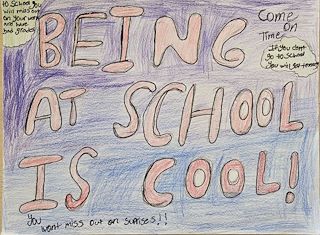 to School you
will miss out
on your work
and have
bad grades
Come
on
Time
If you don't
go to School
you will get
BEING
AT SCHOOL
IS COOL!
you
wont miss out on suprises!!